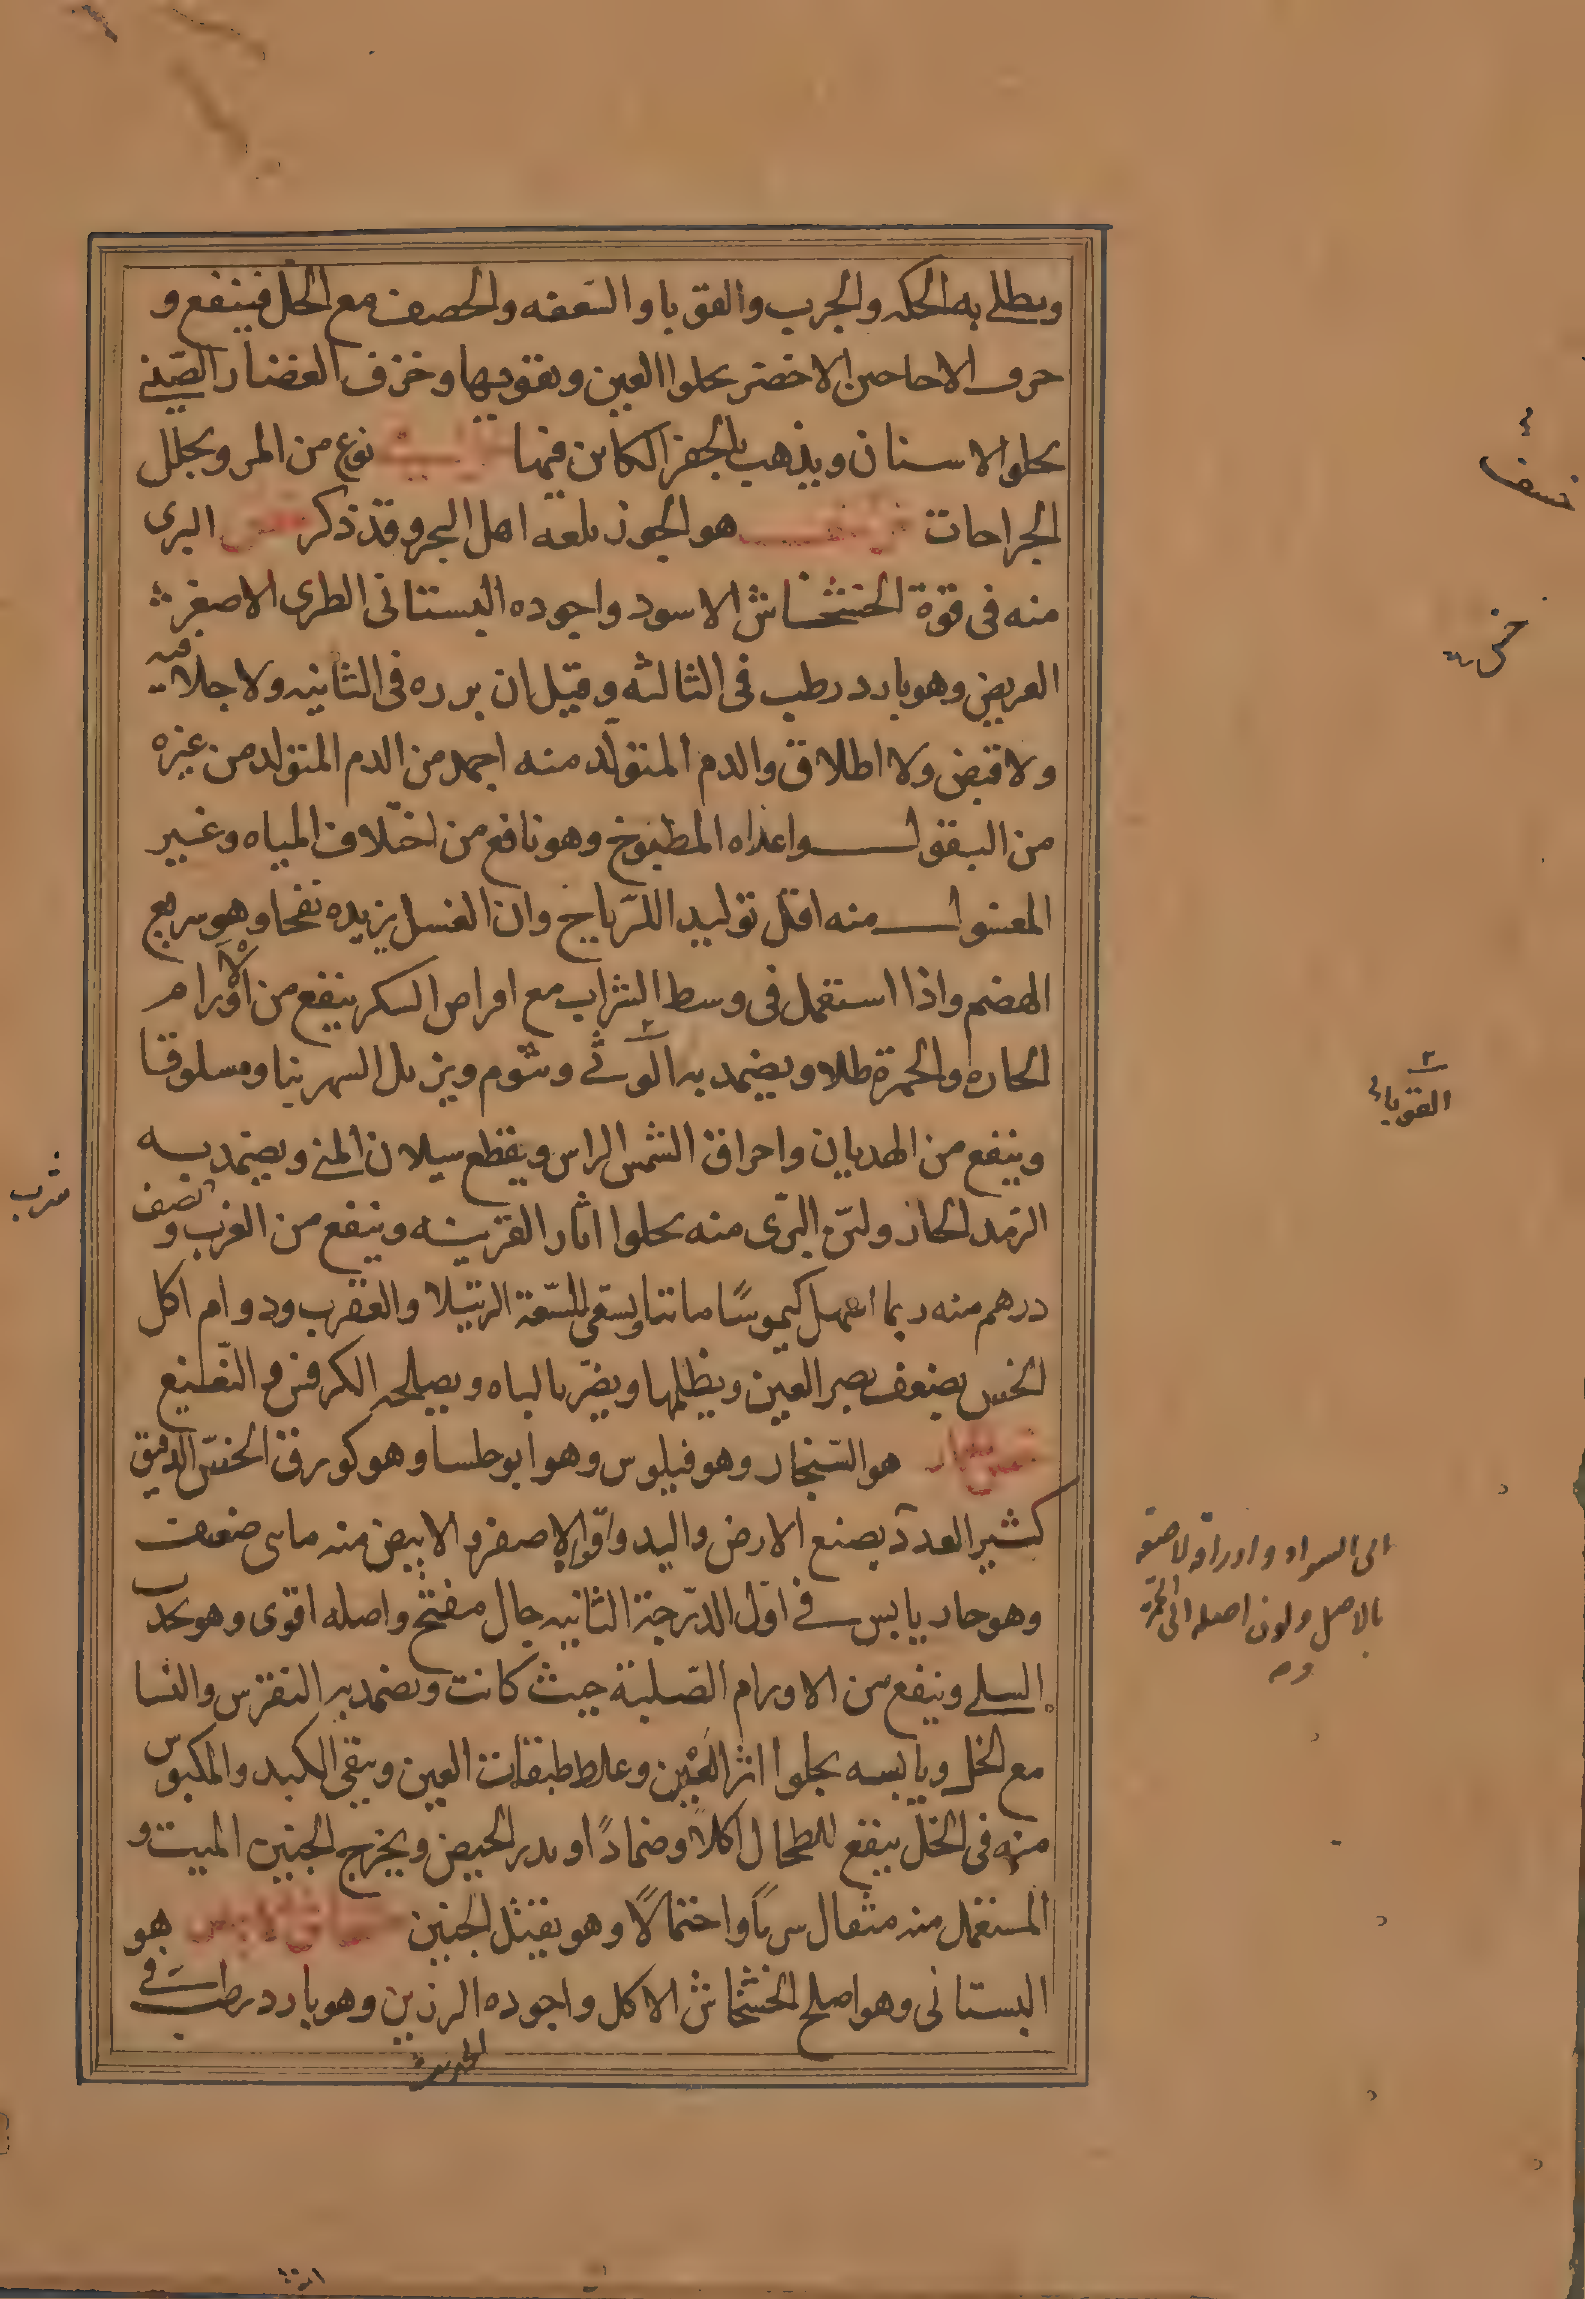 ويطلى به الحكه والجرب والقوبا والسعفه والحصف مع الخل فينفع و
خزف الاجاجين الاخضر يجلوا العين ويقويها وخزف الغضار الصينى
يجلو الاسنان ويذهب بالحفر الكاين فيها نوع من المر ويحلل
الجراحات هو الجوز بلغه اهل البحر وقد ذكر خس البرى
منه فى قوة الخشخاش الاسود واجوده البستانى الطرى الاصفر
العريض وهو بارد رطب فى الثالثه وقيل ان برده فى الثانيه ولا جلا فيه
ولا قبض ولا اطلاق والدم المتولد منه احمد من الدم المتولد من غيره
من البقول واغذاه المطبوخ وهو نافع من اختلاف المياه وغير
المغسول منه اقل توليد اللرياح وان الغسل يزيده نفخا وهو سريع
الهضم واذا استعمل فى وسط الشراب مع اقراص السكر ينفع من الاورام
الحاره والحمرة طلا ويضمد به الوثى وينوم ويزيل السهر نيا ومسلوقا
وينفع من الهديان واحراق الشمس الراس ويقطع سيلان المنى ويضمد به
الرمد الحار ولبن البرى منه يجلوا اثار القرنيه وينفع من الغرب و نصف
درهم منه ربما اسهل كيموسًا مائيا ويسقى للسعة الرتيلا والعقرب ودوام اكل
الخس يضعف بصر العين ويظلمها ويضر بالباه ويصلحه الكرفس و النعنع
خس الحمار هو الشنجار وهو فيلوس وهو ابوحلسا وهو كورق الخس الدقيق
كثير العدد يصبغ الارض واليد واقواه الاصفر و الابيض منه مائى ضعيف
وهو حار يابس فى اول الدرجة الثانيه جال مفتح واصله اقوى وهو يجذب
السلى وينفع من الاورام الصلبة حيث كانت ويضمد به النقرس والنسا
مع الخل ويابسه يجلوا اثر العين وغلظ طبقات العين وينقى الكبد والمكبوس
منه فى الخل ينفع للطحال اكلًا وضمادًا ويدر الحيض ويخرج الجنين الميت و
المستعمل منه مثقال شربًا واحتمالًا وهو يقتل الجنين خشخاش ابيض هو
البستانى وهو اصلح الخشخاش للاكل واجوده الرزين وهو بارد رطب فى
الحديث
خس
القوبا
شرب
الى السواد واوراقه لاصقه
بالاصل ولون اصله الى الحمرة